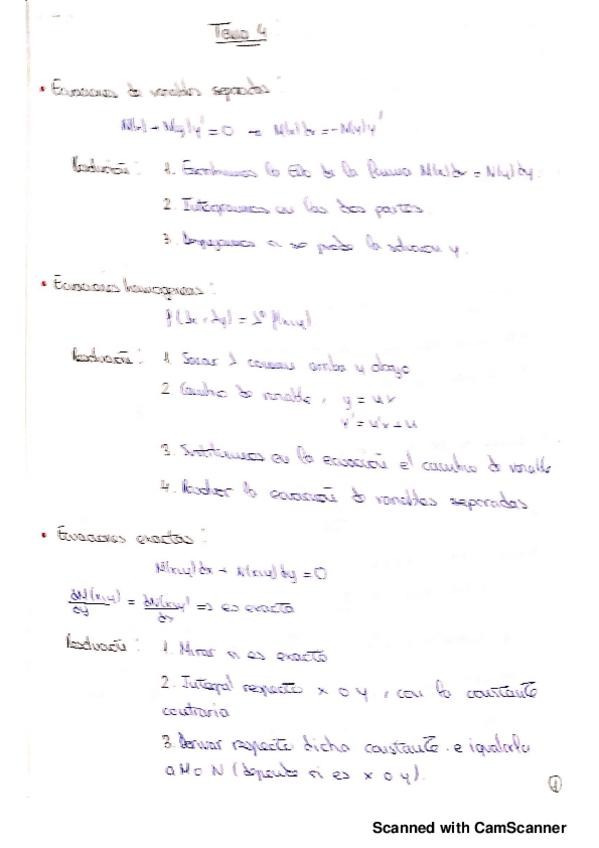 Tema 4
• Ecuaciones de variables separadas:
M(x) + N(y)y' = 0 → M(x)dx = -N(y)y'
Resolución: 1. Escribimos la EDO de la forma M(x)dx = N(y)dy.
2. Integramos en las dos partes.
3. Despejamos si se puede la solución y.
• Ecuaciones homogéneas:
f(λx, λy) = λ⁰ f(x,y)
Resolución: 1. Sacar λ común arriba y abajo
2. Cambio de variable, y = ux
y' = u'x + u
3. Sustituimos en la ecuación el cambio de variable
4. Resolver la ecuación de variables separadas
• Ecuaciones exactas:
M(x,y)dx + N(x,y)dy = 0
dM(x,y)/dy = dN(x,y)/dx => es exacta
Resolución: 1. Mirar si es exacta
2. Integral respecto x o y, con la constante
contraria
3. Derivar respecto dicha constante e igualarla
a M o N (depende si es x o y).
1
Scanned with CamScanner